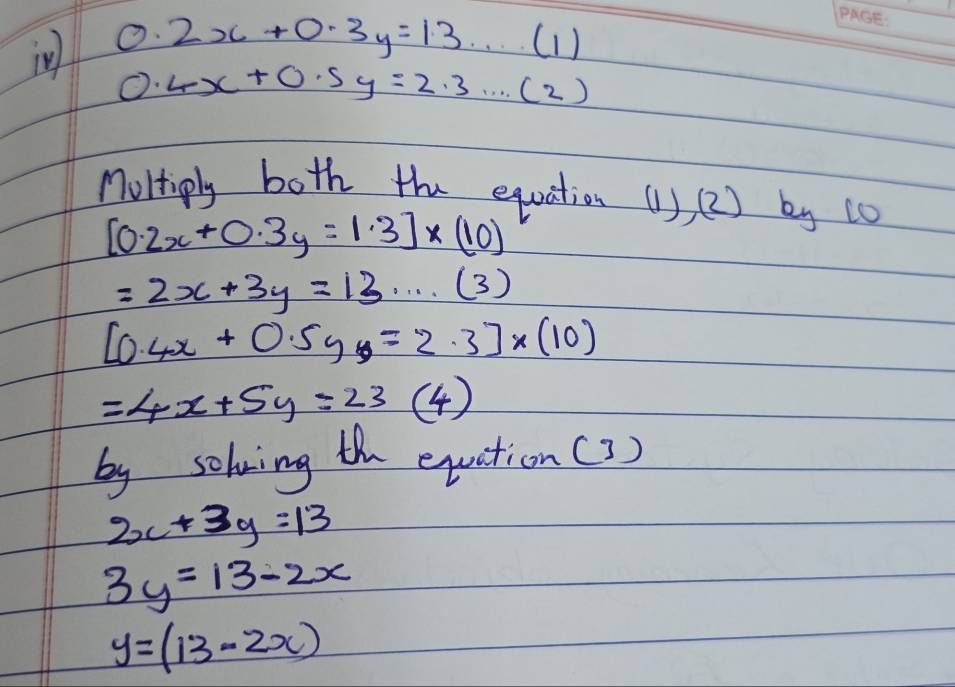 PAGE:
iv) 0.2x + 0.3y = 1.3.... (1)
0.4x + 0.5y = 2.3.... (2)
Multiply both the equation (1),(2) by 10
[0.2x + 0.3y = 1.3] × (10)
= 2x + 3y = 13.... (3)
[0.4x + 0.5y = 2.3] × (10)
= 4x + 5y = 23 (4)
by solving th equation (3)
2x + 3y = 13
3y = 13 - 2x
y = (13 - 2x)